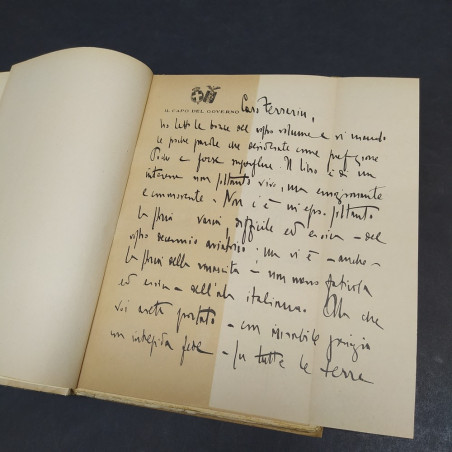 IL CAPO DEL GOVERNO
Caro Ferrarin,
ho letto le bozze del vostro volume e vi mando
le poche parole che desiderate come prefazione
Poche e forse superflue. Il libro è di un
interesse non soltanto vivo, ma emozionante
e commovente - Non c'è in esso soltanto
la storia varia, difficile ed eroica - del
vostro decennio aviatorio; ma vi è - anche -
la storia della rinascita - non meno faticosa
ed eroica - dell'ala italiana. Ala che
voi avete portato - con mirabile perizia
un intrepida fede - in tutte le terre